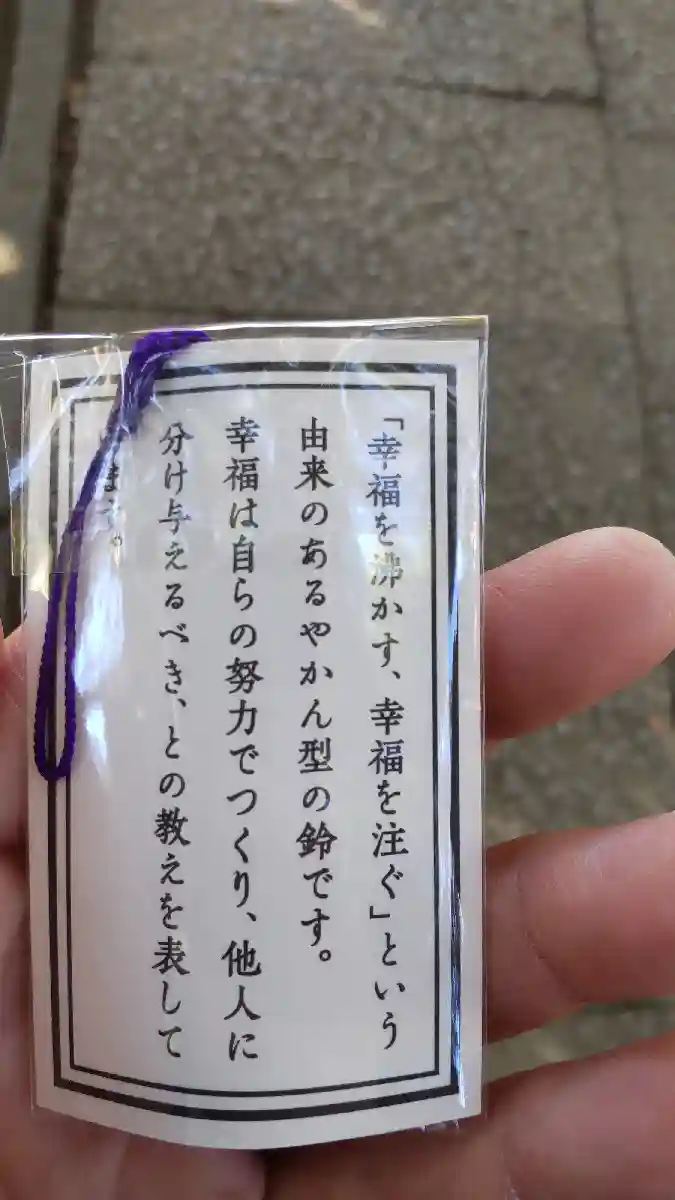 「幸福を沸かす、幸福を注ぐ」という
由来のあるやかん型の鈴です。
幸福は自らの努力でつくり、他人に
分け与えるべき、との教えを表して
います。